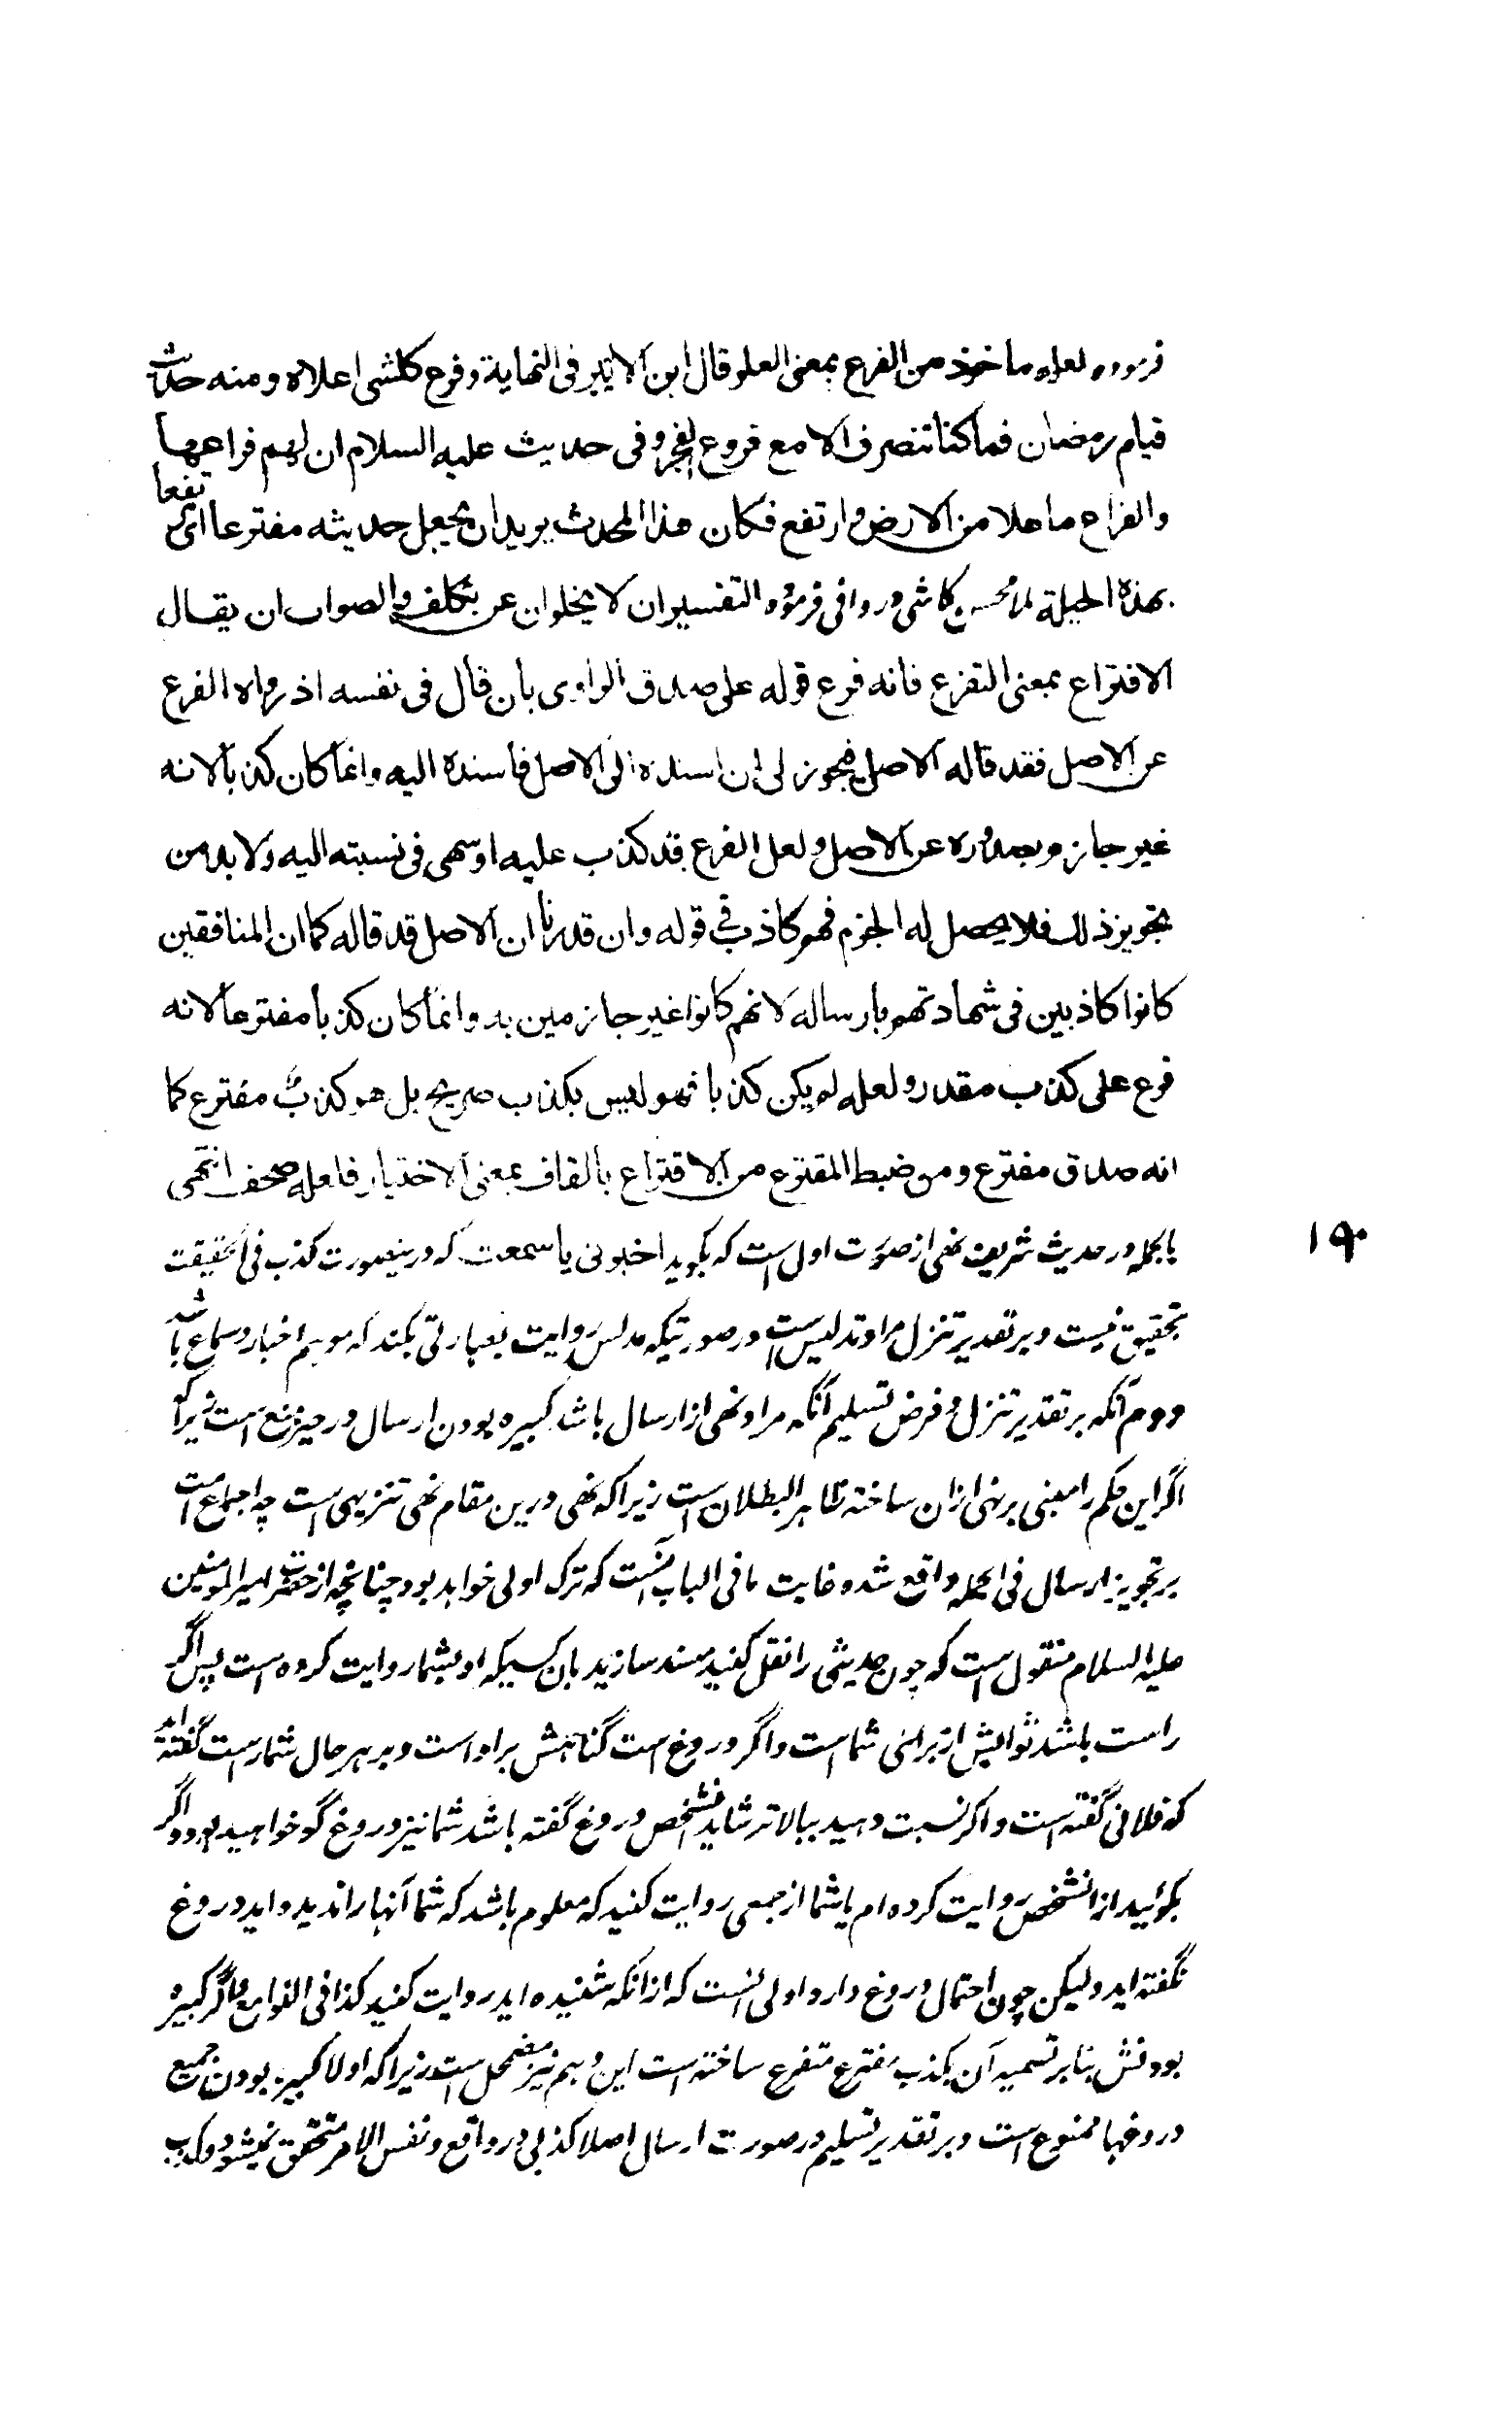 فرموده لعله ماخوذ من الفرع بمعنی العلو قال ابن الاثیر فی النهایة وفرع کلشی اعلاه ومنه حدیث
قیام رمضان فما کنا ننصرف الا مع فروع الفجر وفی حدیث علیه السلام ان لهم فراعها
والفراع ما علا من الارض وارتفع فکان هذا المحدث یرید ان یجعل حدیثه مفترعا ای مرتفعا
بهذه الحیلة ملا محسن کاشی در وافی فرموده التفسیران لا یخلوان عن تکلف والصواب ان یقال
الافتراع بمعنی التفرع فانه فرع قوله علی صدق الراوی بان قال فی نفسه اذ رواه الفرع
عن الاصل فقد قاله الاصل فیجوز لی ان اسنده الی الاصل فاسنده الیه وانما کان کذبا لانه
غیر جازم بصدوره عن الاصل ولعل الفرع قد کذب علیه او سهی فی نسبته الیه ولا بد من
تجویز ذلک فلا یحصل له الجزم فهو کاذب فی قوله وان قدرنا ان الاصل قد قاله کما ان المنافقین
کانوا کاذبین فی شهادتهم بارساله لانهم کانوا غیر جازمین به وانما کان کذبا مفترعا لانه
فرع علی کذب مقدر ولعله لم یکن کذبا فهو لیس بکذب صریح بل هو کذب مفترع کما
انه صدق مفترع ومن ضبط المقترع من الاقتراع بالقاف بمعنی الاختیار فلعله صحف انتهی
بالجمله در حدیث شریف نهی از صورت اول است که بگوید اخبرنی یا سمعت که درینصورت کذب فی الحقیقت
۱۹۰
تحقیق نیست وبر تقدیر تنزل مراد تدلیس است در صورتیکه مدلس روایت بعبارتی بکند که موهم اخبار وسماع باشد
دوم آنکه بر تقدیر تنزل وفرض تسلیم آنکه مراد نهی از ارسال باشد کبیره بودن ارسال در حیز منع است زیرا که
اگر این حکم را مبنی بر نهی ازان ساخته ظاهر البطلان است زیرا که نهی درین مقام نهی تنزیهی است چه اجماع است
بر تجویز ارسال فی الجمله واقع شده غایت ما فی الباب آنست که ترک اولی خواهد بود چنانچه از حضرت امیر المومنین
علیه السلام منقول است که چون حدیثی را نقل کنید مسند سازید بان کسیکه او بشما روایت کرده است پس اگر
راست باشد ثوابش از برای شما است واگر دروغ است گناهش بر او است وبر هر حال شما راست گفته اید
که فلانی گفته است واگر نسبت دهید ببالاتر شاید آنشخص دروغ گفته باشد شما نیز دروغ گو خواهید بود واگر
بگوئید از انشخص روایت کرده ام یا شما از جمعی روایت کنید که معلوم باشد که شما آنها را ندیده اید دروغ
نگفته اید ولیکن چون احتمال دروغ دارد اولی آنست که از انکه شنیده اید روایت کنید کذا فی اللوامع واگر کبیره
بودنش بنا بر تسمیه آن بکذب مفترع متفرع ساخته است این وهم نیز مضمحل است زیرا که اولا کبیره بودن جمیع
دروغها ممنوع است وبر تقدیر تسلیم در صورت ارسال اصلا کذبی در واقع ونفس الامر متحقق نمیشود